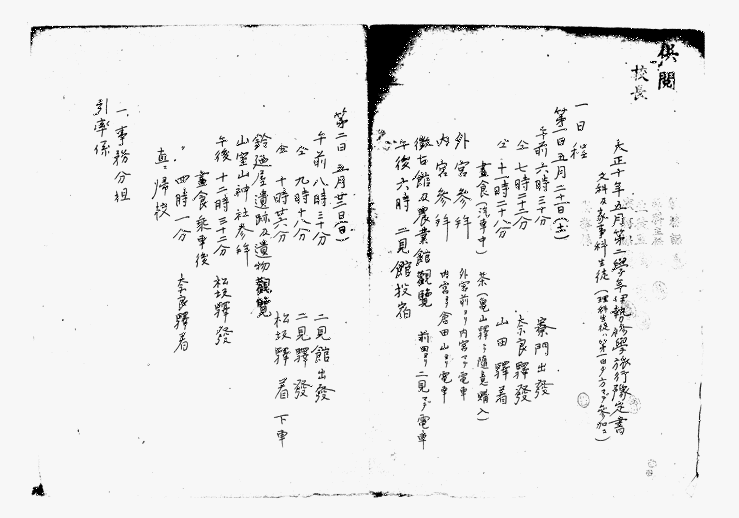 供閲
校長
大正十年五月第二學年伊勢修學旅行豫定書
文科及家事科生徒(理科生徒ハ第一日夕方マデ参加ス)
一日程
第一日五月二十日(土)
午前六時三十分 寮門出發
仝 七時二十二分 奈良驛發
仝 十一時二十八分 山田驛着
晝食(汽車中) 茶(亀山驛ニテ隨意購入)
外宮参拜 外宮前ヨリ内宮マデ電車
内宮参拜 内宮ヨリ倉田山ヨリ電車
徴古館及農業館觀覽 前田ヨリ二見マデ電車
午後六時 二見館投宿
第二日 五月廿一日(日)
午前八時三十分 二見館出發
仝 九時十八分 二見驛發
仝 十時廿六分 松坂驛着 下車
鈴廼屋遺跡及遺物觀覽
山室山神社参拜
午後十二時三十二分 松坂驛發
晝食乘車後
〃 四時一分 奈良驛着
直ニ歸校
一、事務分担
引率係